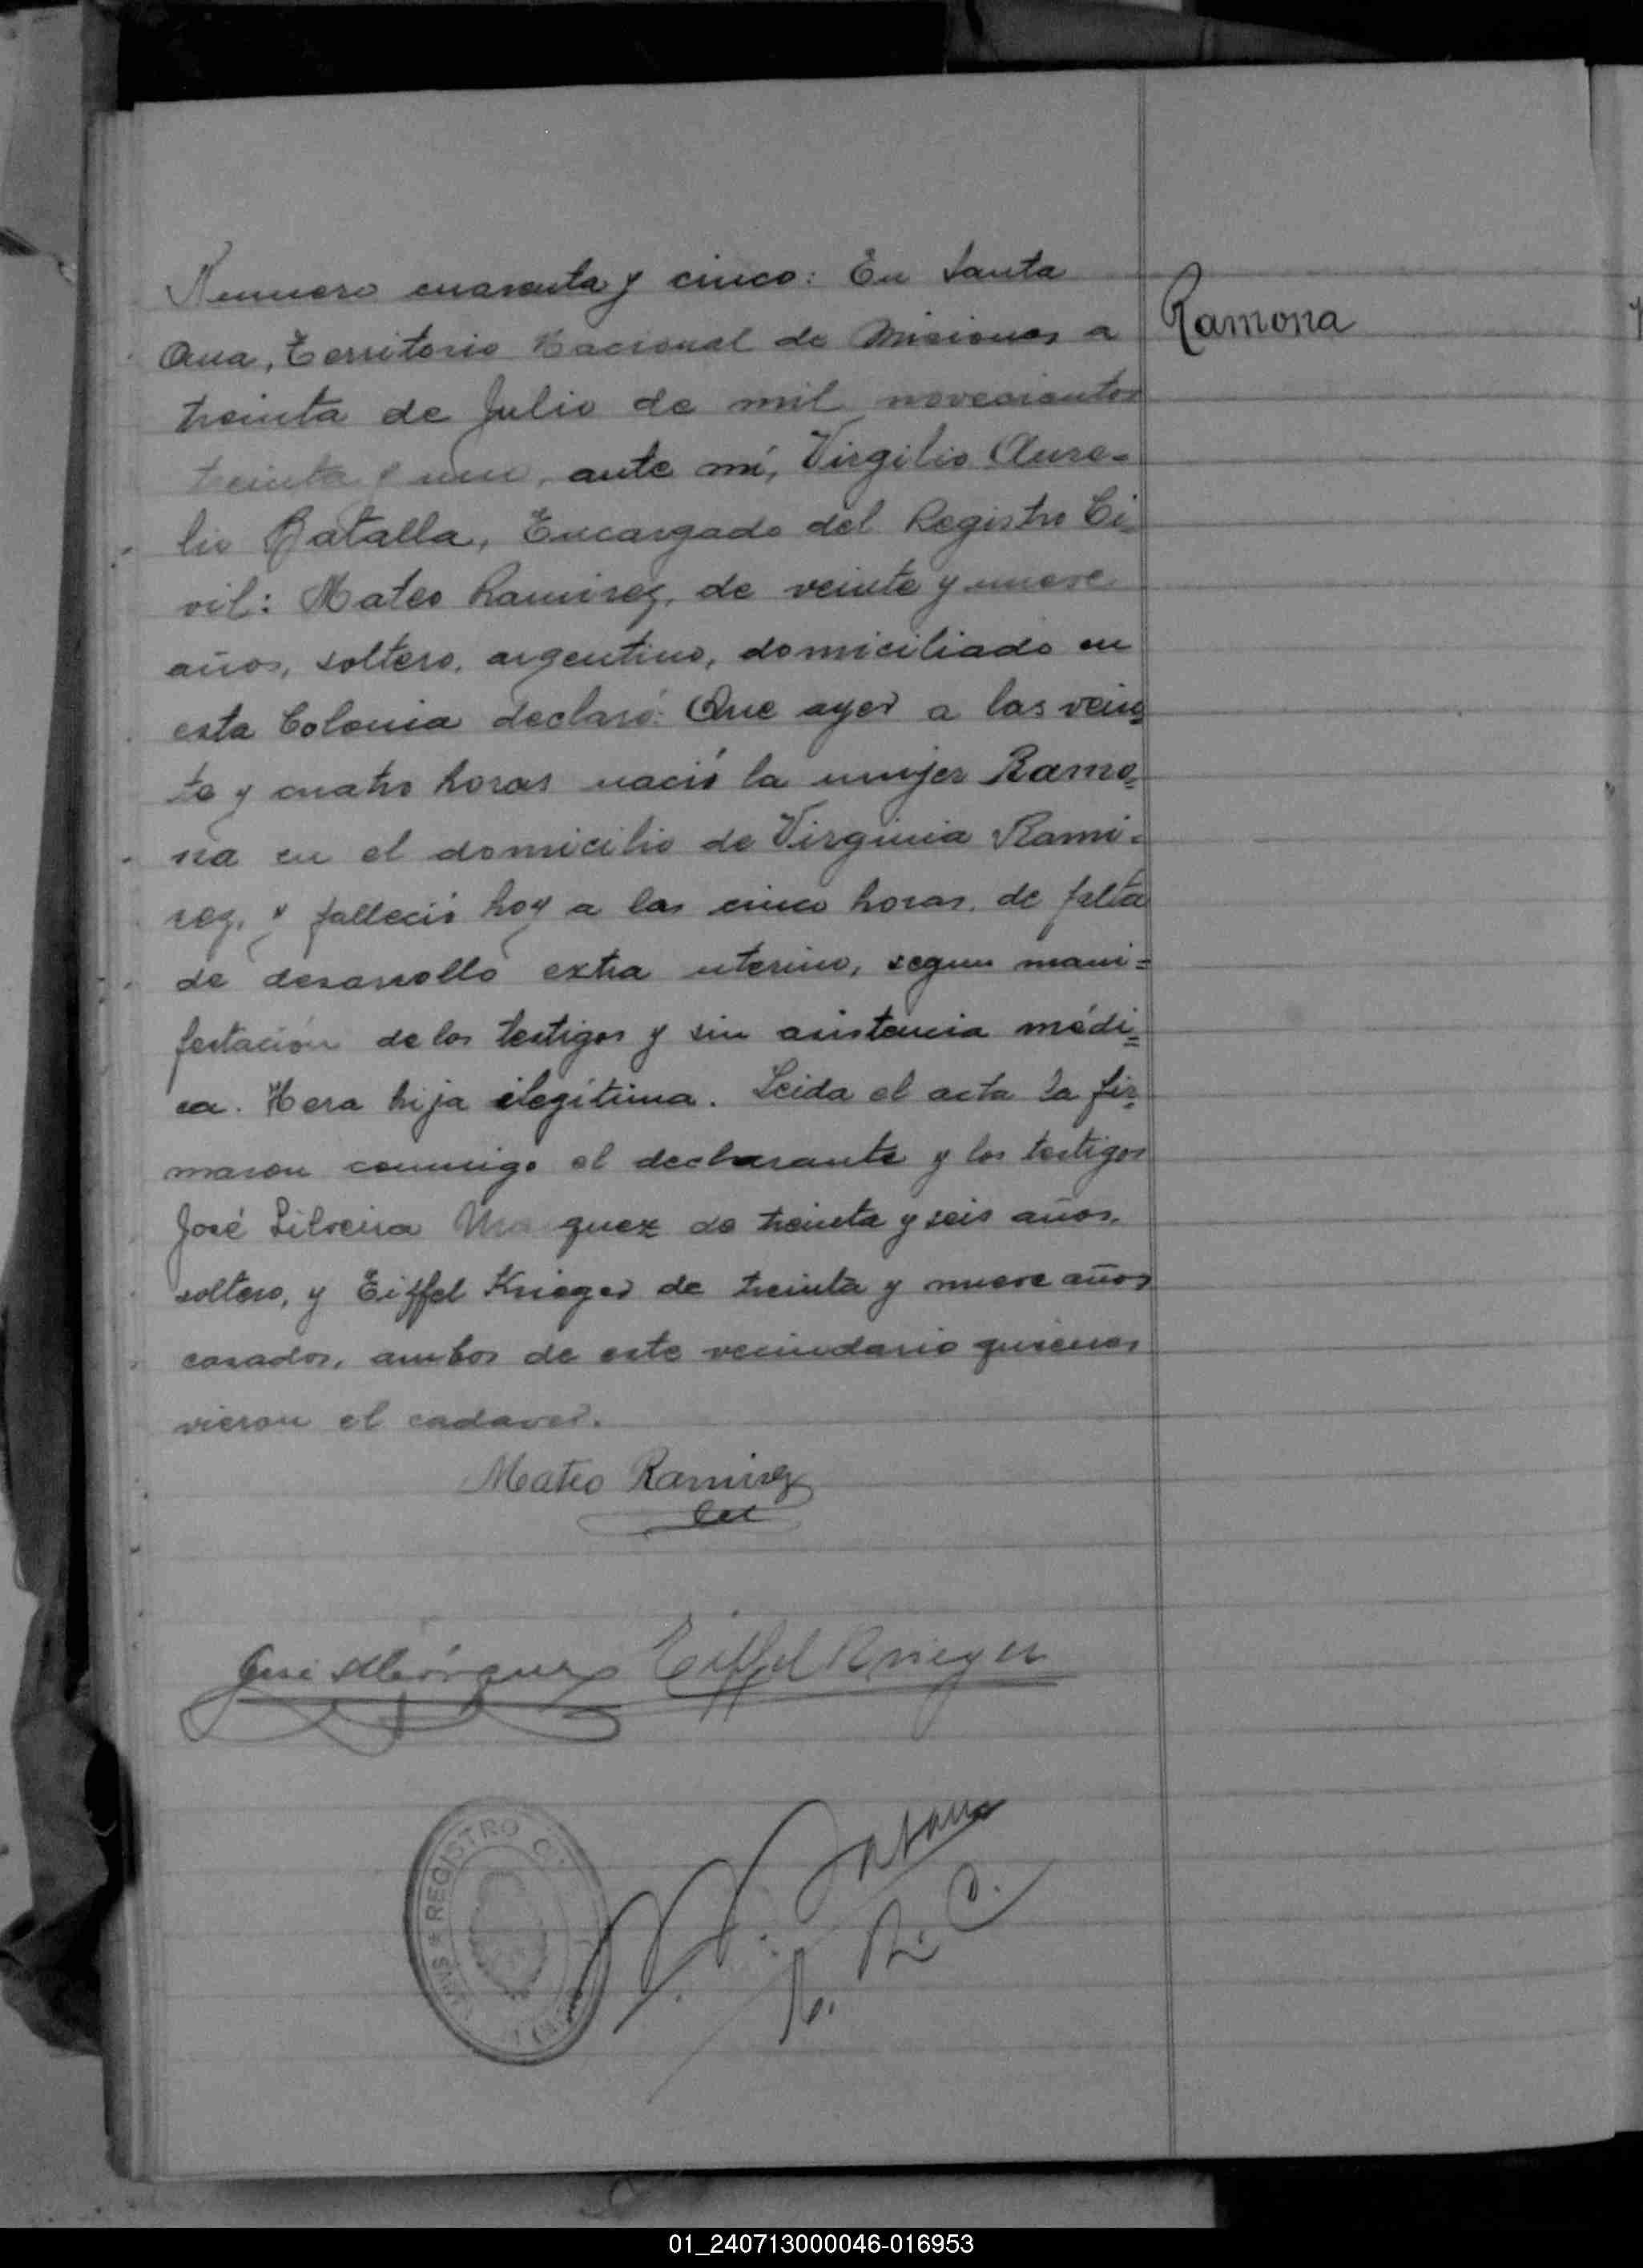 Numero cuarenta y cinco: En Santa
Ana, Territorio Nacional de Misiones a
treinta de Julio de mil novecientos
treinta y uno, ante mí, Virgilio Aure-
lio Batalla, Encargado del Registro Ci-
vil: Mateo Ramirez, de veinte y nueve
años, soltero, argentino, domiciliado en
esta Colonia declaró: Que ayer a las vein-
te y cuatro horas nació la mujer Ramo-
na en el domicilio de Virginia Rami-
rez, y falleció hoy a las cinco horas, de falta
de desarrollo extra uterino, segun mani=
festación de los testigos y sin asistencia médi=
ca. Hera hija ilegítima. Leida el acta la fir-
maron conmigo el declarante y los testigos
José Silveira Marquez de treinta y seis años,
soltero, y Eiffel Krieger de treinta y nueve años
casados, ambos de este vecindario quienes
vieron el cadaver.
Ramona
Mateo Ramirez
José Márquez Eiffel Krieger
REGISTRO
E. R. C.
01_240713000046-016953